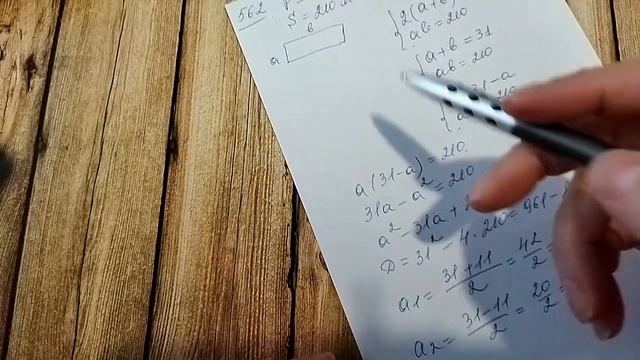 562 P=
S = 210
b
a
2(a+b)
ab = 210
a+b = 31
ab = 210
31-a
a(31-a) = 210.
31a - a² = 210.
a² - 31a + 2
D = 31² - 4·210 = 961 -
a1 = 31+11/2 = 42/2 =
a2 = 31-11/2 = 20/2 =